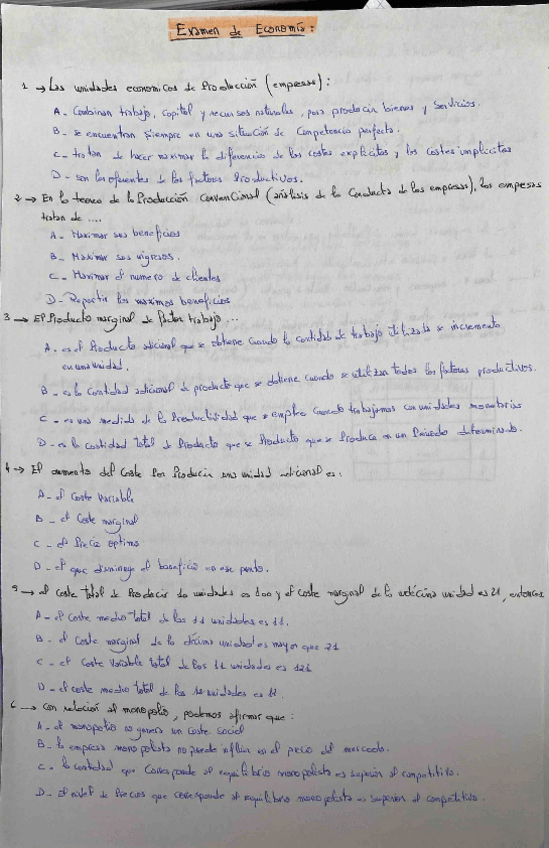 Examen de Economía:
1 → Las unidades economicas de Producción (empresas):
A - Combinan trabajo, capital y recursos naturales, para producir bienes y servicios.
B - se encuentran siempre en una situación de Competencia perfecta.
C - tratan de hacer maximar la diferencia de los costes explicitos y los costes implicitos
D - son los oferentes de los factores Productivos.
2 → En la teoria de la Producción Convencional (análisis de la Conducta de las empresas), las empresas
tratan de ....
A - Maximar sus beneficios
B - Maximar sus ingresos.
C - Maximar el numero de clientes
D - Repartir los maximos beneficios
3 → El Producto marginal de factor trabajo ...
A - es el Producto adicional que se obtiene cuando la cantidad de trabajo utilizada se incrementa
en una unidad.
B - es la Cantidad adicional de producto que se obtiene cuando se utilizan todos los factores productivos.
C - es una medida de la Productividad que se emplea cuando trabajamos con unidades monetarias
D - es la cantidad total de Producto que se Producto que se Produce en un Periodo determinado.
4 → El aumento del Coste Por Producir una unidad adicional es:
A - el Coste Variable
B - el Coste marginal
C - el Precio optimo
D - el que disminuye el beneficio en ese punto.
5 → el Coste total de Producir 10 unidades es 100 y el coste marginal de la undécima unidad es 21, entonces
A - el Coste medio total de las 11 unidades es 11.
B - el Coste marginal de la décima unidad es mayor que 21
C - el Coste Variable total de las 11 unidades es 121
D - el coste medio total de las 10 unidades es 12.
6 → Con relación al monopolio, podemos afirmar que:
A - el monopolio no genera un Coste Social
B - la empresa monopolista no puede influir en el precio del mercado.
C - la cantidad que Corresponde al equilibrio monopolista es superior al competitivo.
D - El nivel de Precios que corresponde al equilibrio monopolista es superior al competitivo.